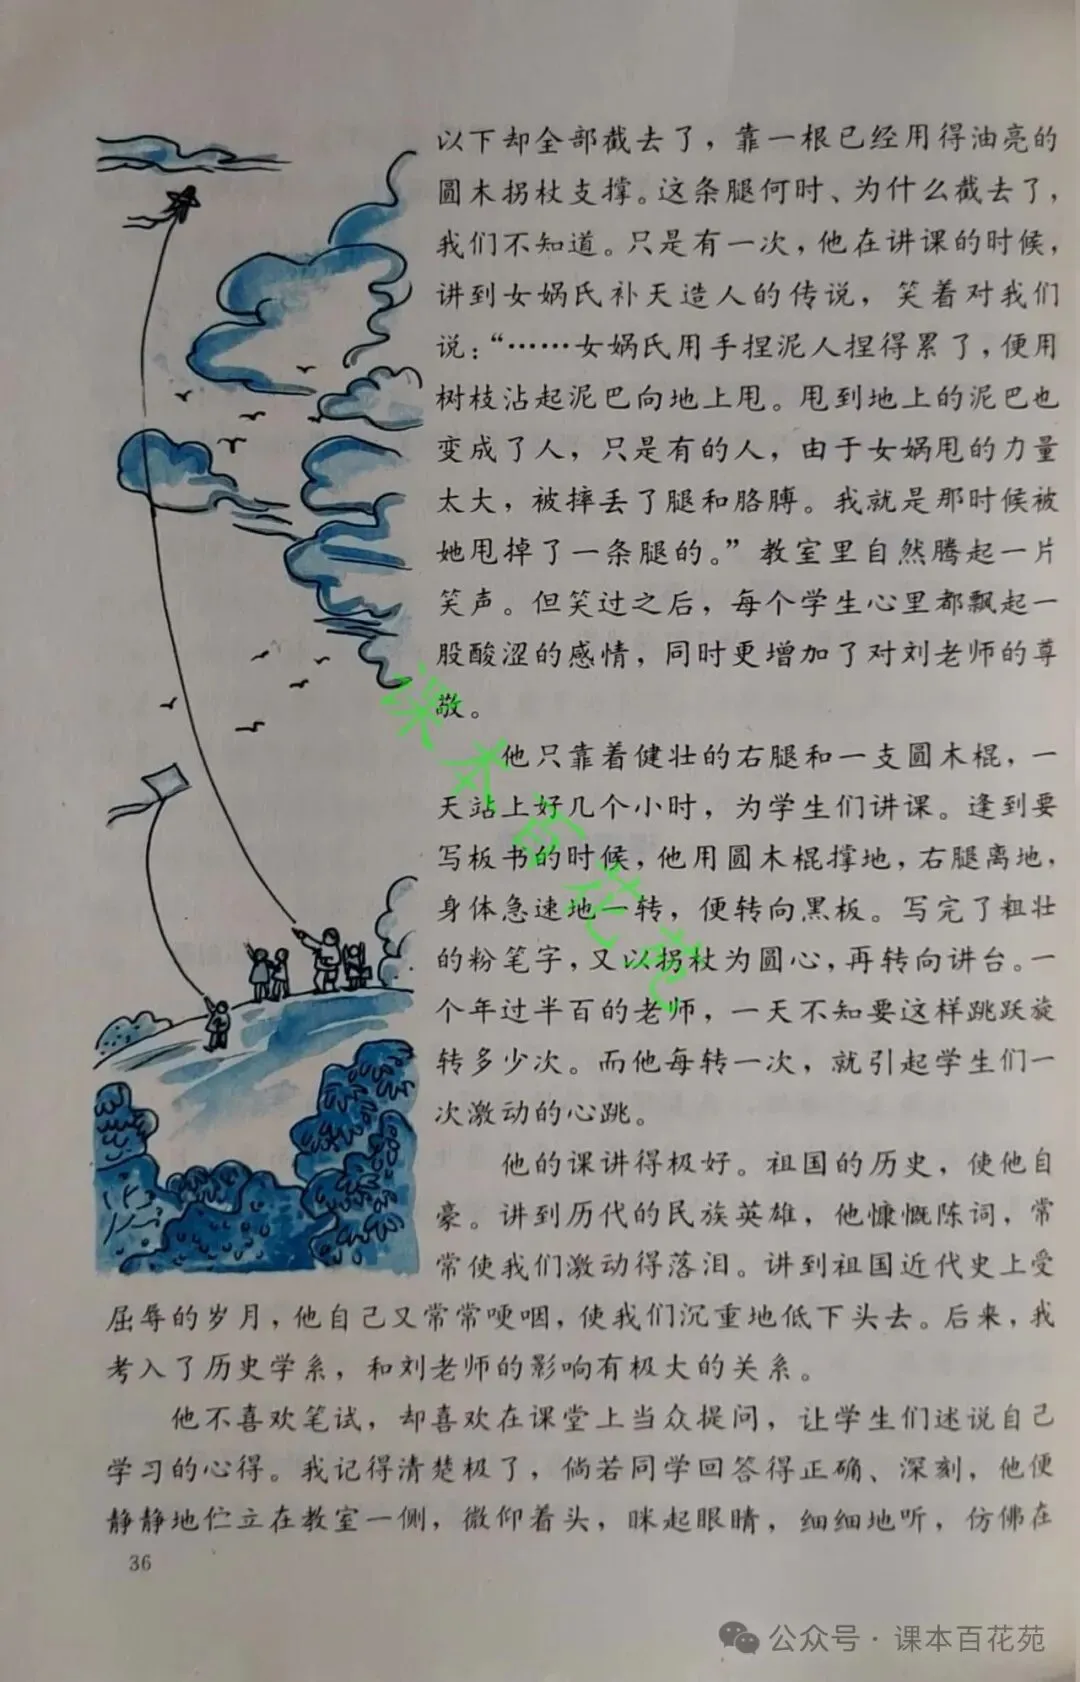 以下却全部截去了，靠一根已经用得油亮的
圆木拐杖支撑。这条腿何时、为什么截去了，
我们不知道。只是有一次，他在讲课的时候，
讲到女娲氏补天造人的传说，笑着对我们
说：“……女娲氏用手捏泥人捏得累了，便用
树枝沾起泥巴向地上甩。甩到地上的泥巴也
变成了人，只是有的人，由于女娲甩的力量
太大，被摔丢了腿和胳膊。我就是那时候被
她甩掉了一条腿的。”教室里自然腾起一片
笑声。但笑过之后，每个学生心里都飘起一
股酸涩的感情，同时更增加了对刘老师的尊
敬。
他只靠着健壮的右腿和一支圆木棍，一
天站上好几个小时，为学生们讲课。逢到要
写板书的时候，他用圆木棍撑地，右腿离地，
身体急速地一转，便转向黑板。写完了粗壮
的粉笔字，又以拐杖为圆心，再转向讲台。一
个年过半百的老师，一天不知要这样跳跃旋
转多少次。而他每转一次，就引起学生们一
次激动的心跳。
他的课讲得极好。祖国的历史，使他自
豪。讲到历代的民族英雄，他慷慨陈词，常
常使我们激动得落泪。讲到祖国近代史上受
屈辱的岁月，他自己又常常哽咽，使我们沉重地低下头去。后来，我
考入了历史学系，和刘老师的影响有极大的关系。
他不喜欢笔试，却喜欢在课堂上当众提问，让学生们述说自己
学习的心得。我记得清楚极了，倘若同学回答得正确、深刻，他便
静静地伫立在教室一侧，微仰着头，眯起眼睛，细细地听，仿佛在
36
课本百花苑
公众号·课本百花苑